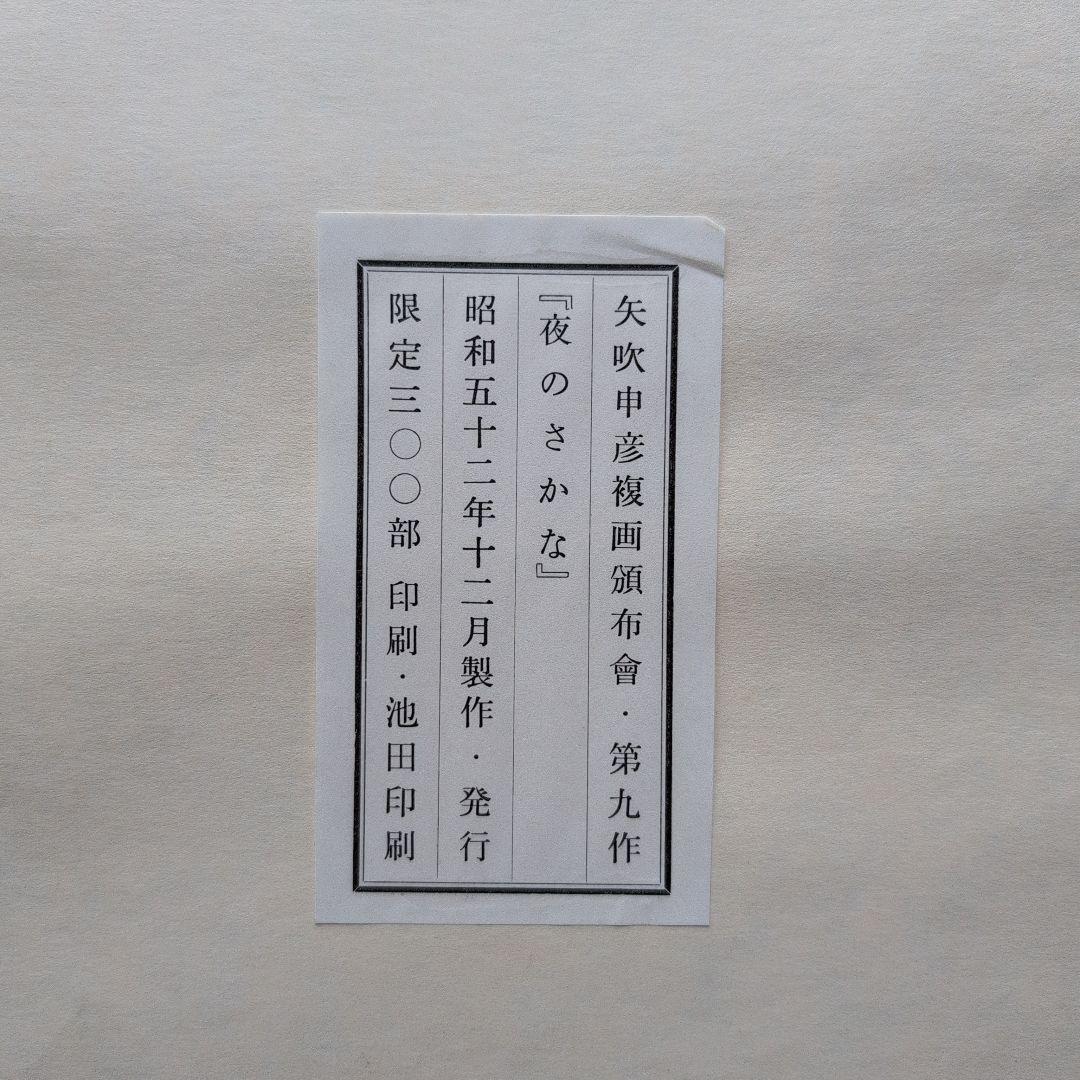 矢吹申彦複画頒布會・第九作
『夜のさかな』
昭和五十二年十二月製作・発行
限定三〇〇部 印刷・池田印刷